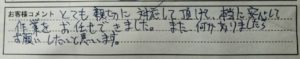 お客様コメント とても親切に対応して頂けて、本当に安心して
作業をお任せできました。また何かありましたら
お願いしたいと思います。